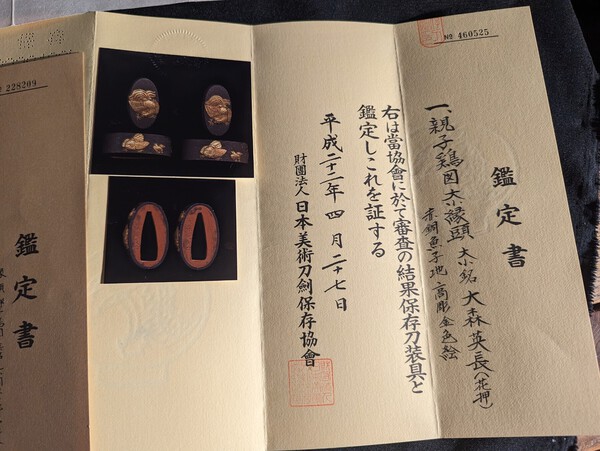 № 460525
鑑定書
一、親子鶏図大小縁頭 大小銘 大森英長(花押)
赤銅魚子地 高彫 金色絵
右は當協會に於て審査の結果保存刀装具と
鑑定しこれを証する
平成二十二年四月二十七日
財團法人日本美術刀劍保存協會
№ 228209
鑑定書